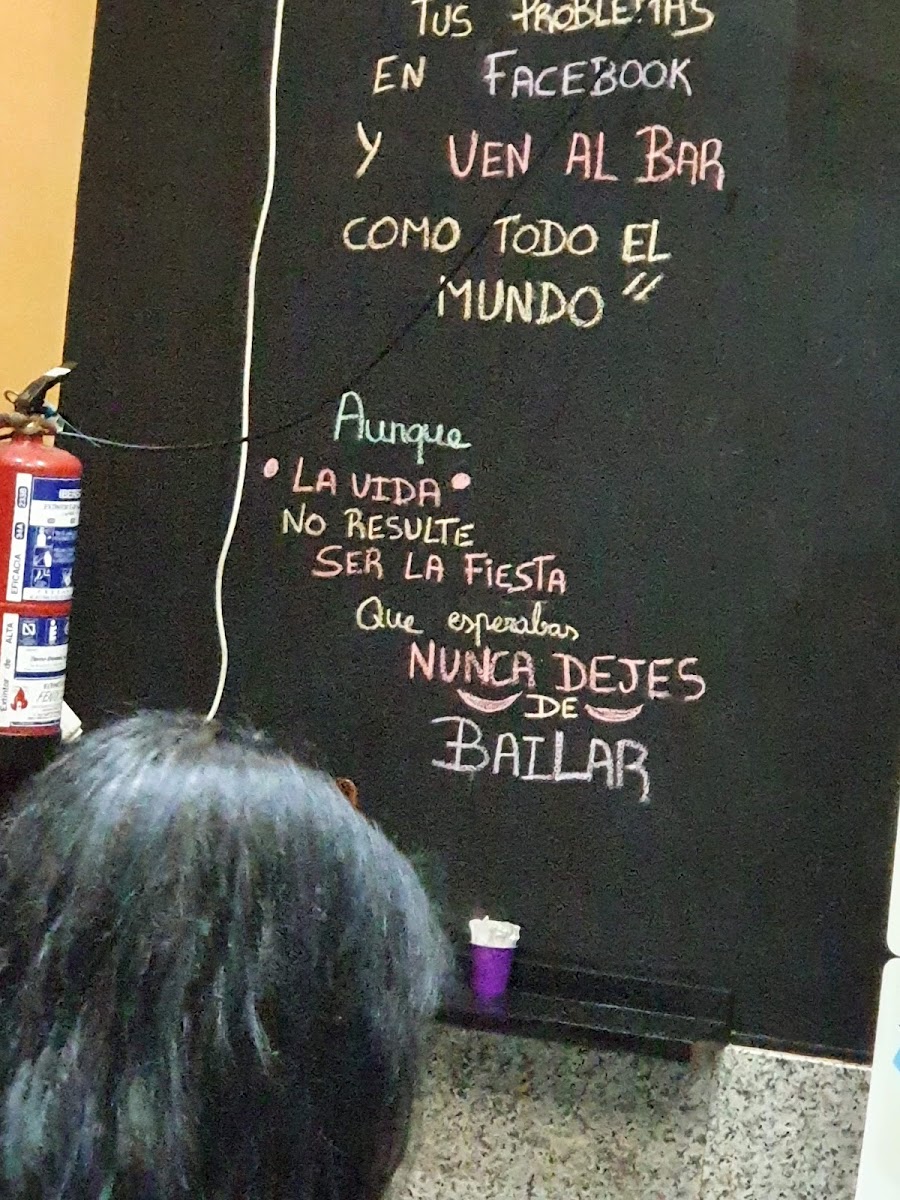 TUS PROBLEMAS
EN FACEBOOK
Y VEN AL BAR
COMO TODO EL
MUNDO"
Aunque
• LA VIDA •
NO RESULTE
SER LA FIESTA
Que esperabas
NUNCA DEJES
DE
BAILAR
EFICACIA
Extintor de ALTA